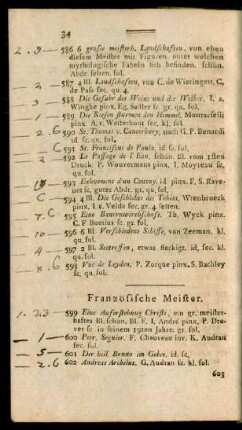 34
2 . 9 — 586 6 große meisterh. Landschaften, von eben
diesem Meister mit Figuren, unter welchen
mythologische Fabeln sich befinden, schön.
Abdr. selten. fol.
587 4 Bl. Landschaften, von C. de Wieringen, C.
de Pass sc. qu. 4.
588 Die Gefahr des Weins und der Weiber. I. a
Winghe pinx. Eg. Sadler sc. gr. qu. fol.
589 Die Riesen stürmen den Himmel,
pinx. A. v. Westerhout sc. kl. fol.
590 St. Thomas v. Canterbury, nach G. P. Benardi
id. sc. qu. fol.
591 St. Franciscus de Paula, id. sc. fol.
592 Le Passage de l'Eau, schön. Bl. vom 1sten
Druck. F. Wouvermans pinx. I. Moyreau sc.
qu. fol.
593 Enlevement d'un id. pinx. F. S. Rave-
net sc. guter Abdr. gr. qu. fol.
594 4 Bl. die Geschichte des Tobias, Wtenbroeck
pinx. I. v. Velde sc. gr. 4 selten.
595 Eine Bauernwirthschaft. Th. Wyck pinx.
C. F. Boetius sc. gr. fol.
596 6 Bl. Verschiedene Schiffe, von Zeeman. kl.
qu. fol.
597 2 Bl. Seetreffen, etwas fleckigt. id. sc. kl.
qu. fol.
598 Vue de Leyden. P. Zorque pinx. S. Bachley
sc. qu. fol.
Französische Meister.
599 Eine Auferstehung Christi, ein gr. meister-
haftes Bl. schön. Bl. F. I. André pinx. P. Dre-
vet sc. in seinem 19ten Jahre. gr. fol.
600 Petr. Seguier. F. Chauveau inv. K. Audran
sc. fol.
601 Der heil. Bruno im Gebet. id. sc.
602 Andreas Archelus. G. Audran sc. kl. fol.
603